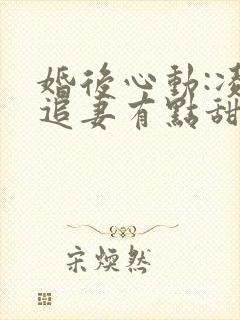 婚後心動:
追妻有點甜
宋煥然